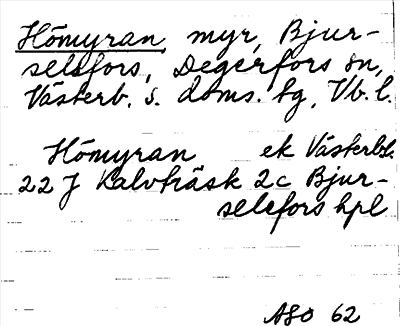 Hömyran, myr, Bjur-
selsfors, Degerfors sn,
Västerb. s. doms. tg, Vb. l.
Hömyran ek Västerb.
22 J Kalvträsk 2c Bjur-
selsfors hpl
ASO 62